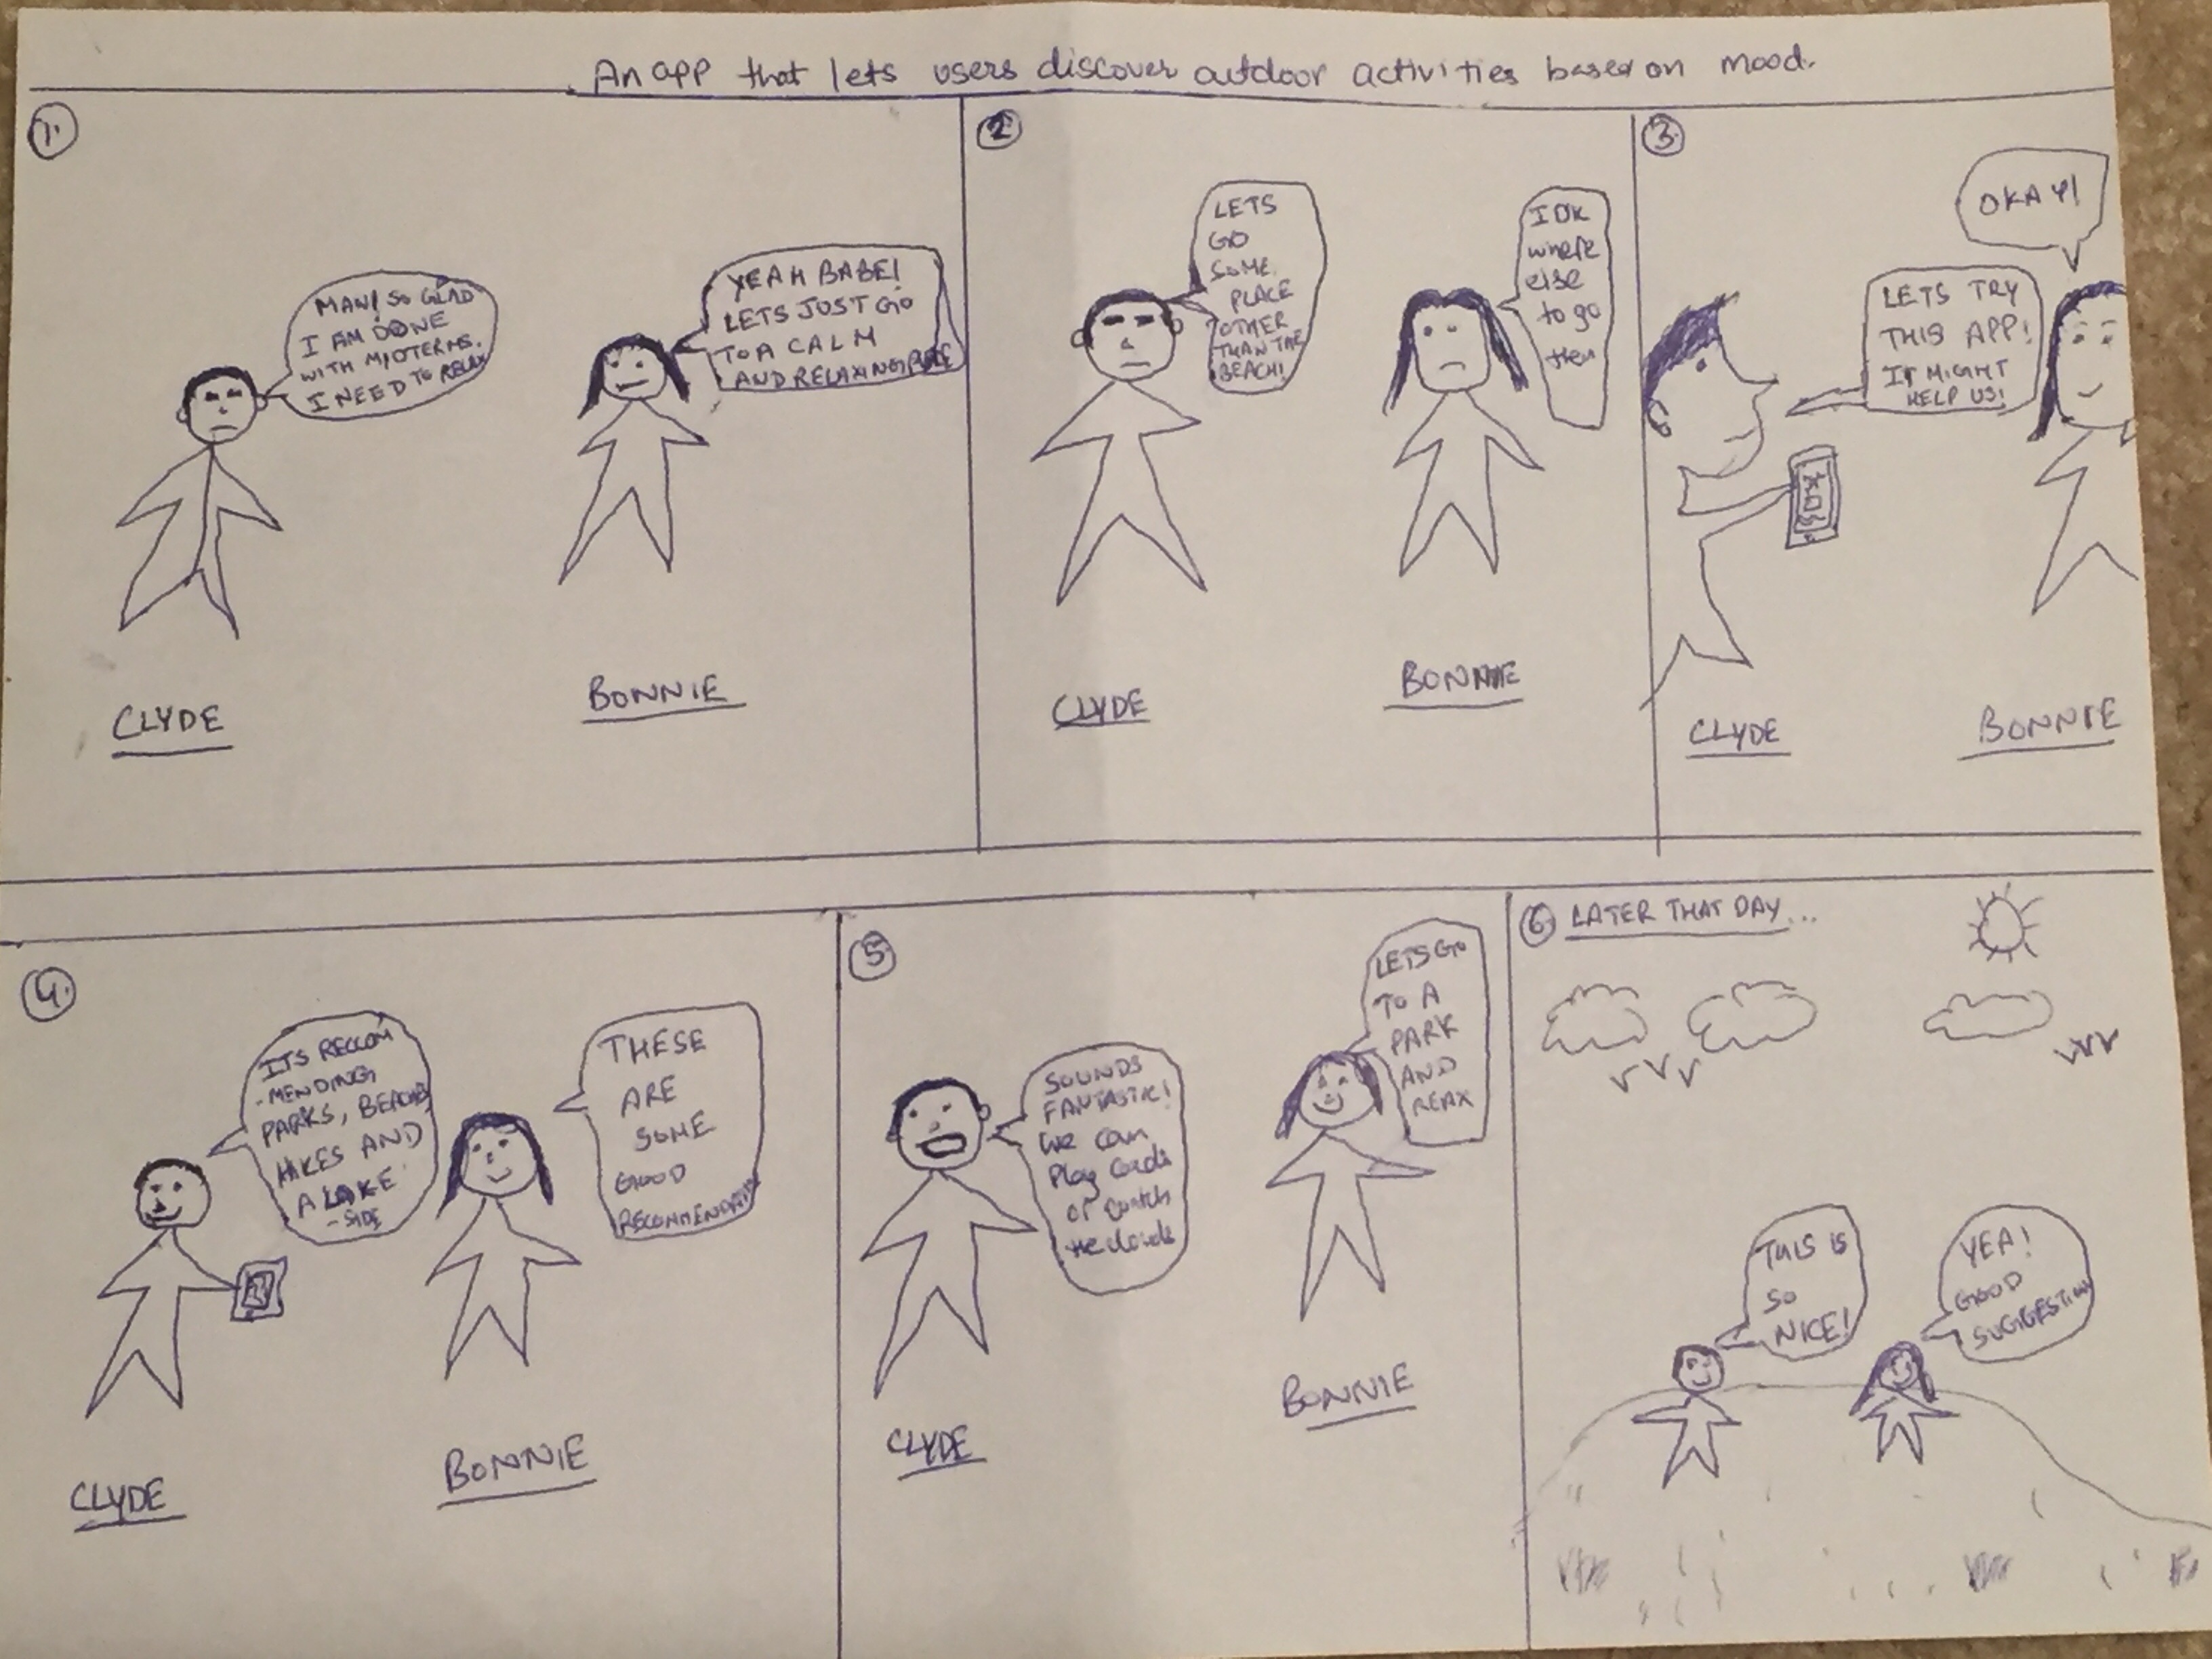 An app that lets users discover outdoor activities based on mood.
1.
MAN! SO GLAD
I AM DONE
WITH MIDTERMS.
I NEED TO RELAX
YEAH BABE!
LETS JUST GO
TO A CALM
AND RELAXING PLACE
CLYDE
BONNIE
2
LETS
GO
SOME
PLACE
OTHER
THAN THE
BEACH!
IDK
where
else
to go
then
CLYDE
BONNIE
3.
OKAY!
LETS TRY
THIS APP!
IT MIGHT
HELP US!
CLYDE
BONNIE
4.
ITS RECCOM
-MENDING
PARKS, BEACHES,
HIKES AND
A LAKE
-SIDE
THESE
ARE
SOME
GOOD
RECOMMENDATIONS
CLYDE
BONNIE
5
LETS GO
TO A
PARK
AND
RELAX
SOUNDS
FANTASTIC!
We can
Play Cards
or watch
the clouds
CLYDE
BONNIE
6 LATER THAT DAY...
THIS IS
SO
NICE!
YEA!
GOOD
SUGGESTION